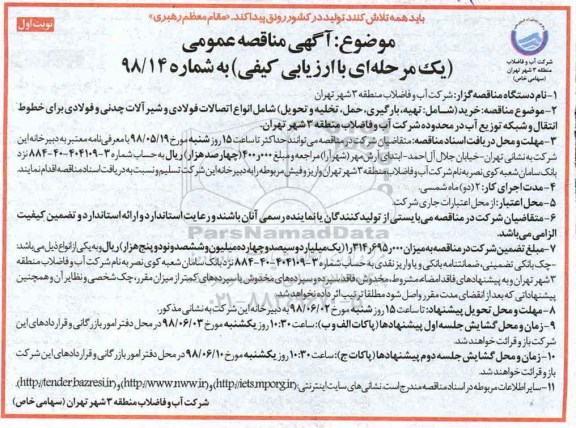 باید همه تلاش کنند تولید در کشور رونق پیدا کند. «مقام معظم رهبری»
نوبت اول
شرکت آب و فاضلاب
منطقه ۳ شهر تهران
(سهامی خاص)
موضوع: آگهی مناقصه عمومی
(یک مرحله‌ای با ارزیابی کیفی) به شماره ۹۸/۱۴
۱- نام دستگاه مناقصه‌گزار: شرکت آب و فاضلاب منطقه ۳ شهر تهران
۲- موضوع مناقصه: خرید (شامل: تهیه، بارگیری، حمل، تخلیه و تحویل) شامل انواع اتصالات فولادی و شیرآلات چدنی و فولادی برای خطوط
انتقال و شبکه توزیع آب در محدوده شرکت آب و فاضلاب منطقه ۳ شهر تهران.
۳- مهلت و محل دریافت اسناد مناقصه: متقاضیان شرکت در مناقصه می‌توانند حداکثر تا ساعت ۱۵ روز شنبه مورخ ۹۸/۰۵/۱۹ با معرفی‌نامه معتبر به دبیرخانه این
شرکت به نشانی تهران- خیابان جلال آل احمد- ابتدای آرش مهر (شهرآرا) مراجعه و مبلغ ۴۰۰٫۰۰۰ (چهارصد هزار) ریال به حساب شماره ۳-۴۰۴۱۰۹-۴۰-۸۸۴ نزد
بانک سامان شعبه کوی نصر به نام شرکت آب و فاضلاب منطقه ۳ شهر تهران واریز و فیش مربوطه را به دبیرخانه این شرکت تسلیم و نسبت به دریافت اسناد مناقصه اقدام نمایند.
۴- مدت اجرای کار: ۲ (دو) ماه شمسی.
۵- محل اعتبار: از محل اعتبارات جاری شرکت
۶- متقاضیان شرکت در مناقصه می‌بایستی از تولیدکنندگان یا نماینده رسمی آنان باشند و رعایت استاندارد و ارائه استاندارد و تضمین کیفیت
الزامی می‌باشد.
۷- مبلغ تضمین شرکت در مناقصه به میزان ۱٫۳۱۴٫۶۹۵٫۰۰۰ (یک میلیارد و سیصد و چهارده میلیون و ششصد و نود و پنج هزار) ریال و به یکی از انواع ذیل می‌باشد
-چک بانکی تضمینی، ضمانتنامه بانکی و یا واریز نقدی به حساب شماره ۳-۴۰۴۱۰۹-۴۰-۸۸۴ نزد بانک سامان شعبه کوی نصر به نام شرکت آب و فاضلاب منطقه
۳ شهر تهران و به پیشنهادهای فاقد امضاء، مشروط، مخدوش، فاقد سپرده و سپرده‌های مخدوش یا سپرده‌های کمتر از میزان مقرر، چک شخصی و نظایر آن و همچنین
پیشنهاداتی که بعد از انقضای مدت مقرر واصل شود مطلقا ترتیب اثر داده نخواهد شد.
۸- مهلت و محل تحویل پیشنهاد: تا ساعت ۱۵ روز شنبه مورخ ۹۸/۰۶/۰۲ به دبیرخانه این شرکت به نشانی مذکور.
۹- زمان و محل گشایش جلسه اول پیشنهادها (پاکات الف و ب): ساعت ۱۰:۳۰ روز یکشنبه مورخ ۹۸/۰۶/۰۳ در محل دفتر امور بازرگانی و قراردادهای این
شرکت باز و قرائت خواهند شد.
۱۰- زمان و محل گشایش جلسه دوم پیشنهادها (پاکات ج): ساعت ۱۰:۳۰ روز یکشنبه مورخ ۹۸/۰۶/۱۰ در محل دفتر امور بازرگانی و قراردادهای این شرکت
باز و قرائت خواهند شد.
۱۱- سایر اطلاعات مربوطه در اسناد مناقصه مندرج است. نشانی‌های سایت اینترنتی: (http://iets.mporg.ir) و (http://www.nww.ir) و (http://tender.bazresi.ir).
شرکت آب و فاضلاب منطقه ۳ شهر تهران (سهامی خاص)
ParsNamadData